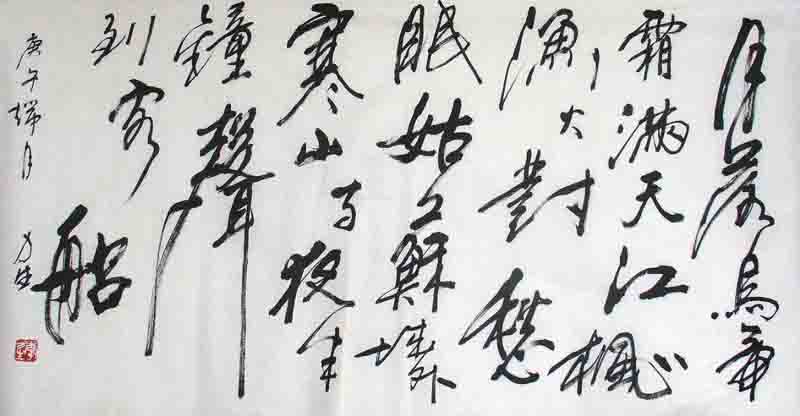 月落烏啼
霜滿天江楓
漁火對愁
眠姑蘇城外
寒山寺夜半
鐘聲
到客船
庚午 月 方生